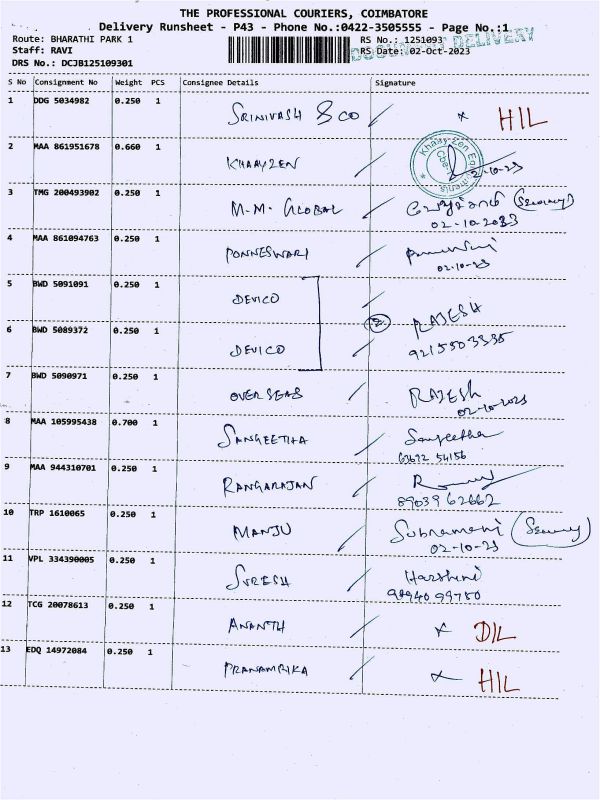 THE PROFESSIONAL COURIERS, COIMBATORE
Delivery Runsheet - P43 - Phone No.:0422-3505555 - Page No.:1
Route: BHARATHI PARK 1 RS No.: 1251093
DELIVERY
Staff: RAVI RS Date: 02-Oct-2023
DRS No.: DCJB125109301
S No Consignment No Weight PCS Consignee Details Signature
1 DDG 5034982 0.250 1 SRINIVASH & CO x HIL
2 MAA 861951678 0.660 1 KHAAYZEN 2-10-23
3 TMG 200493902 0.250 1 M.M. GLOBAL (Security)
02-10-2023
4 MAA 861094763 0.250 1 PONNESWARI
02-10-23
5 BWD 5091091 0.250 1 DEVICO
2 RAJESH
6 BWD 5089372 0.250 1 DEVICO 9215503335
7 BWD 5090971 0.250 1 OVERSEAS RAJESH
02-10-2023
8 MAA 105995438 0.700 1 SANGEETHA Sangeetha
54156
9 MAA 944310701 0.250 1 RANGARAJAN
89039 62662
10 TRP 1610065 0.250 1 MANJU Subramani (Security)
02-10-23
11 VPL 334390005 0.250 1 SURESH Harshini
99750
12 TCG 20078613 0.250 1 ANANTH x DIL
13 EDQ 14972084 0.250 1 PRANAMBIKA x HIL